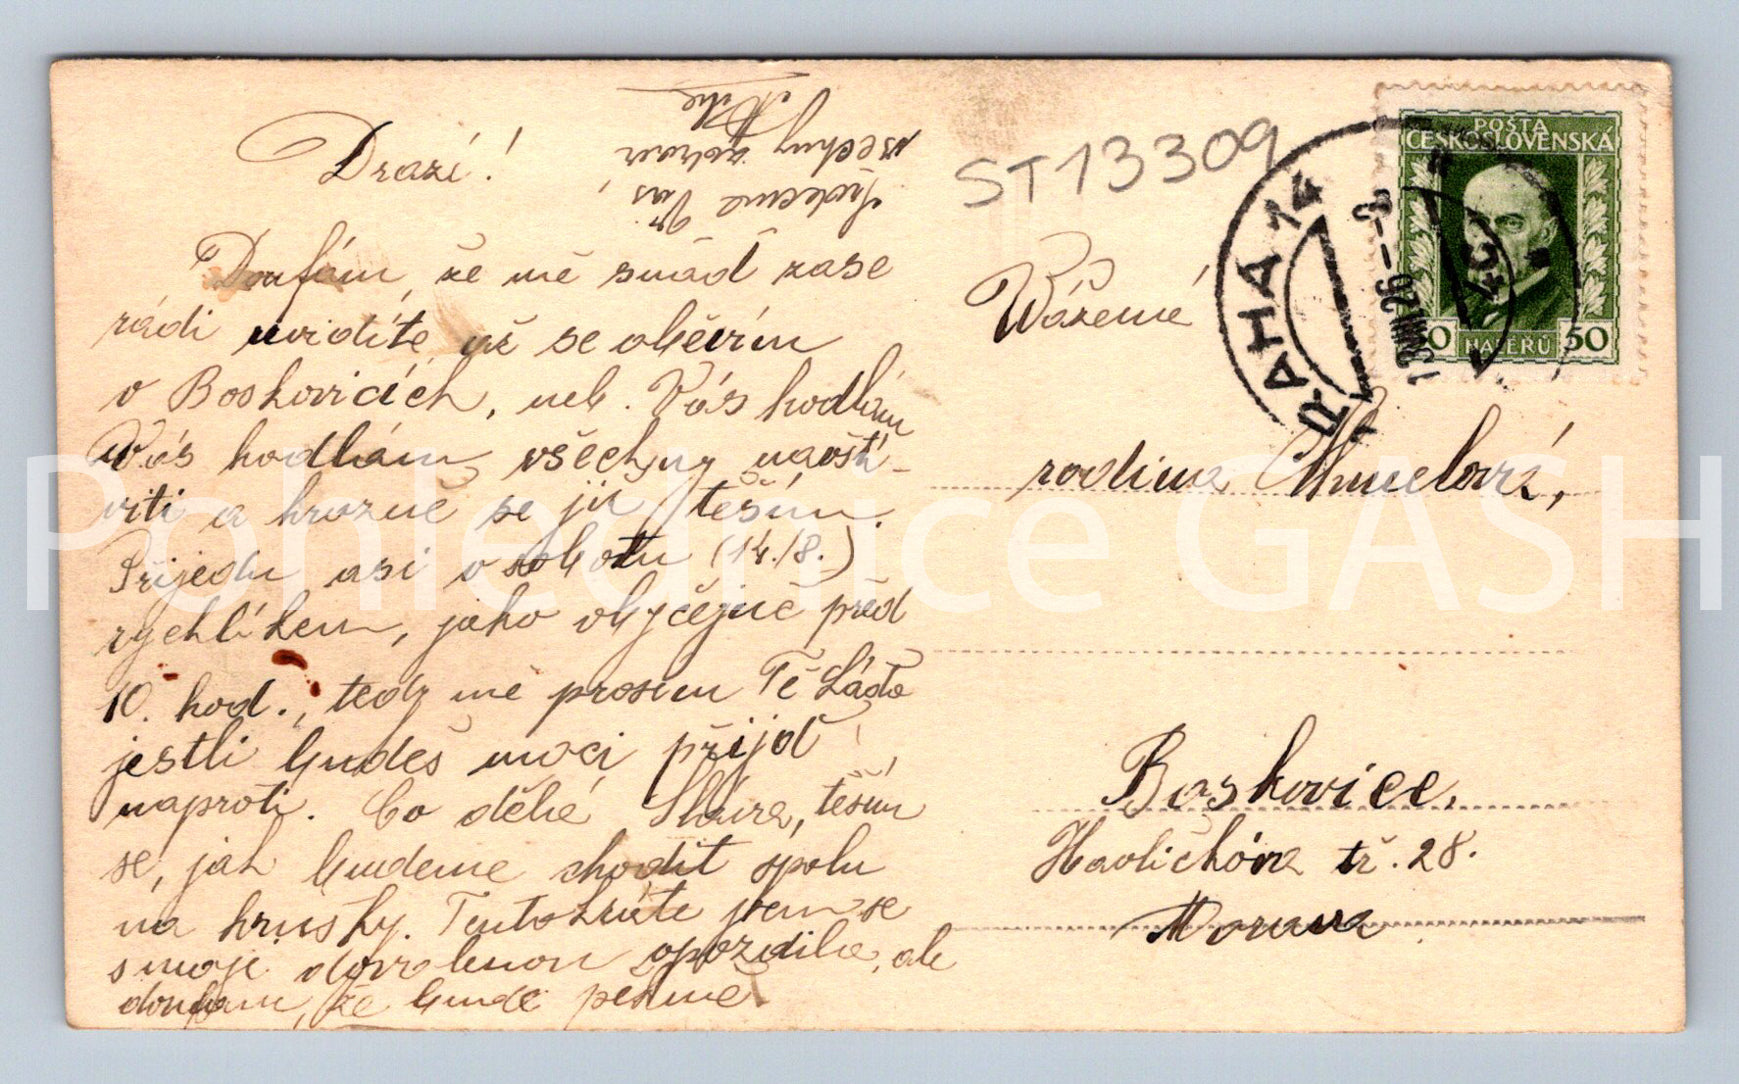 Drazí!
Doufám, že mě snad zase
rádi uvidíte, už se objevím
v Boskovicích, neb. Vás hodlám
Vás hodlám všechny navští-
viti a hrozně se již těším.
Přijedu asi v sobotu (14./8.)
rychlíkem, jako obyčejně před
10. hod., tedy mě prosím Tě Láďo
jestli budeš moci přijď
naproti. Co dělá Sláva, těším
se, jak budeme chodit spolu
na hrušky. Tentokráte jsem se
s moji dovolenou opozdila, ale
doufám, že bude pěkně
Srdečně Vás
všechny zdraví
ST13309
Vážená
rodina Chmelová,
Boskovice.
Havlíčkova tř. 28.
Morava
POŠTA
ČESKOSLOVENSKÁ
50 HALÉŘŮ 50
PRAHA 14
13.VIII.26
Pohlednice GASH